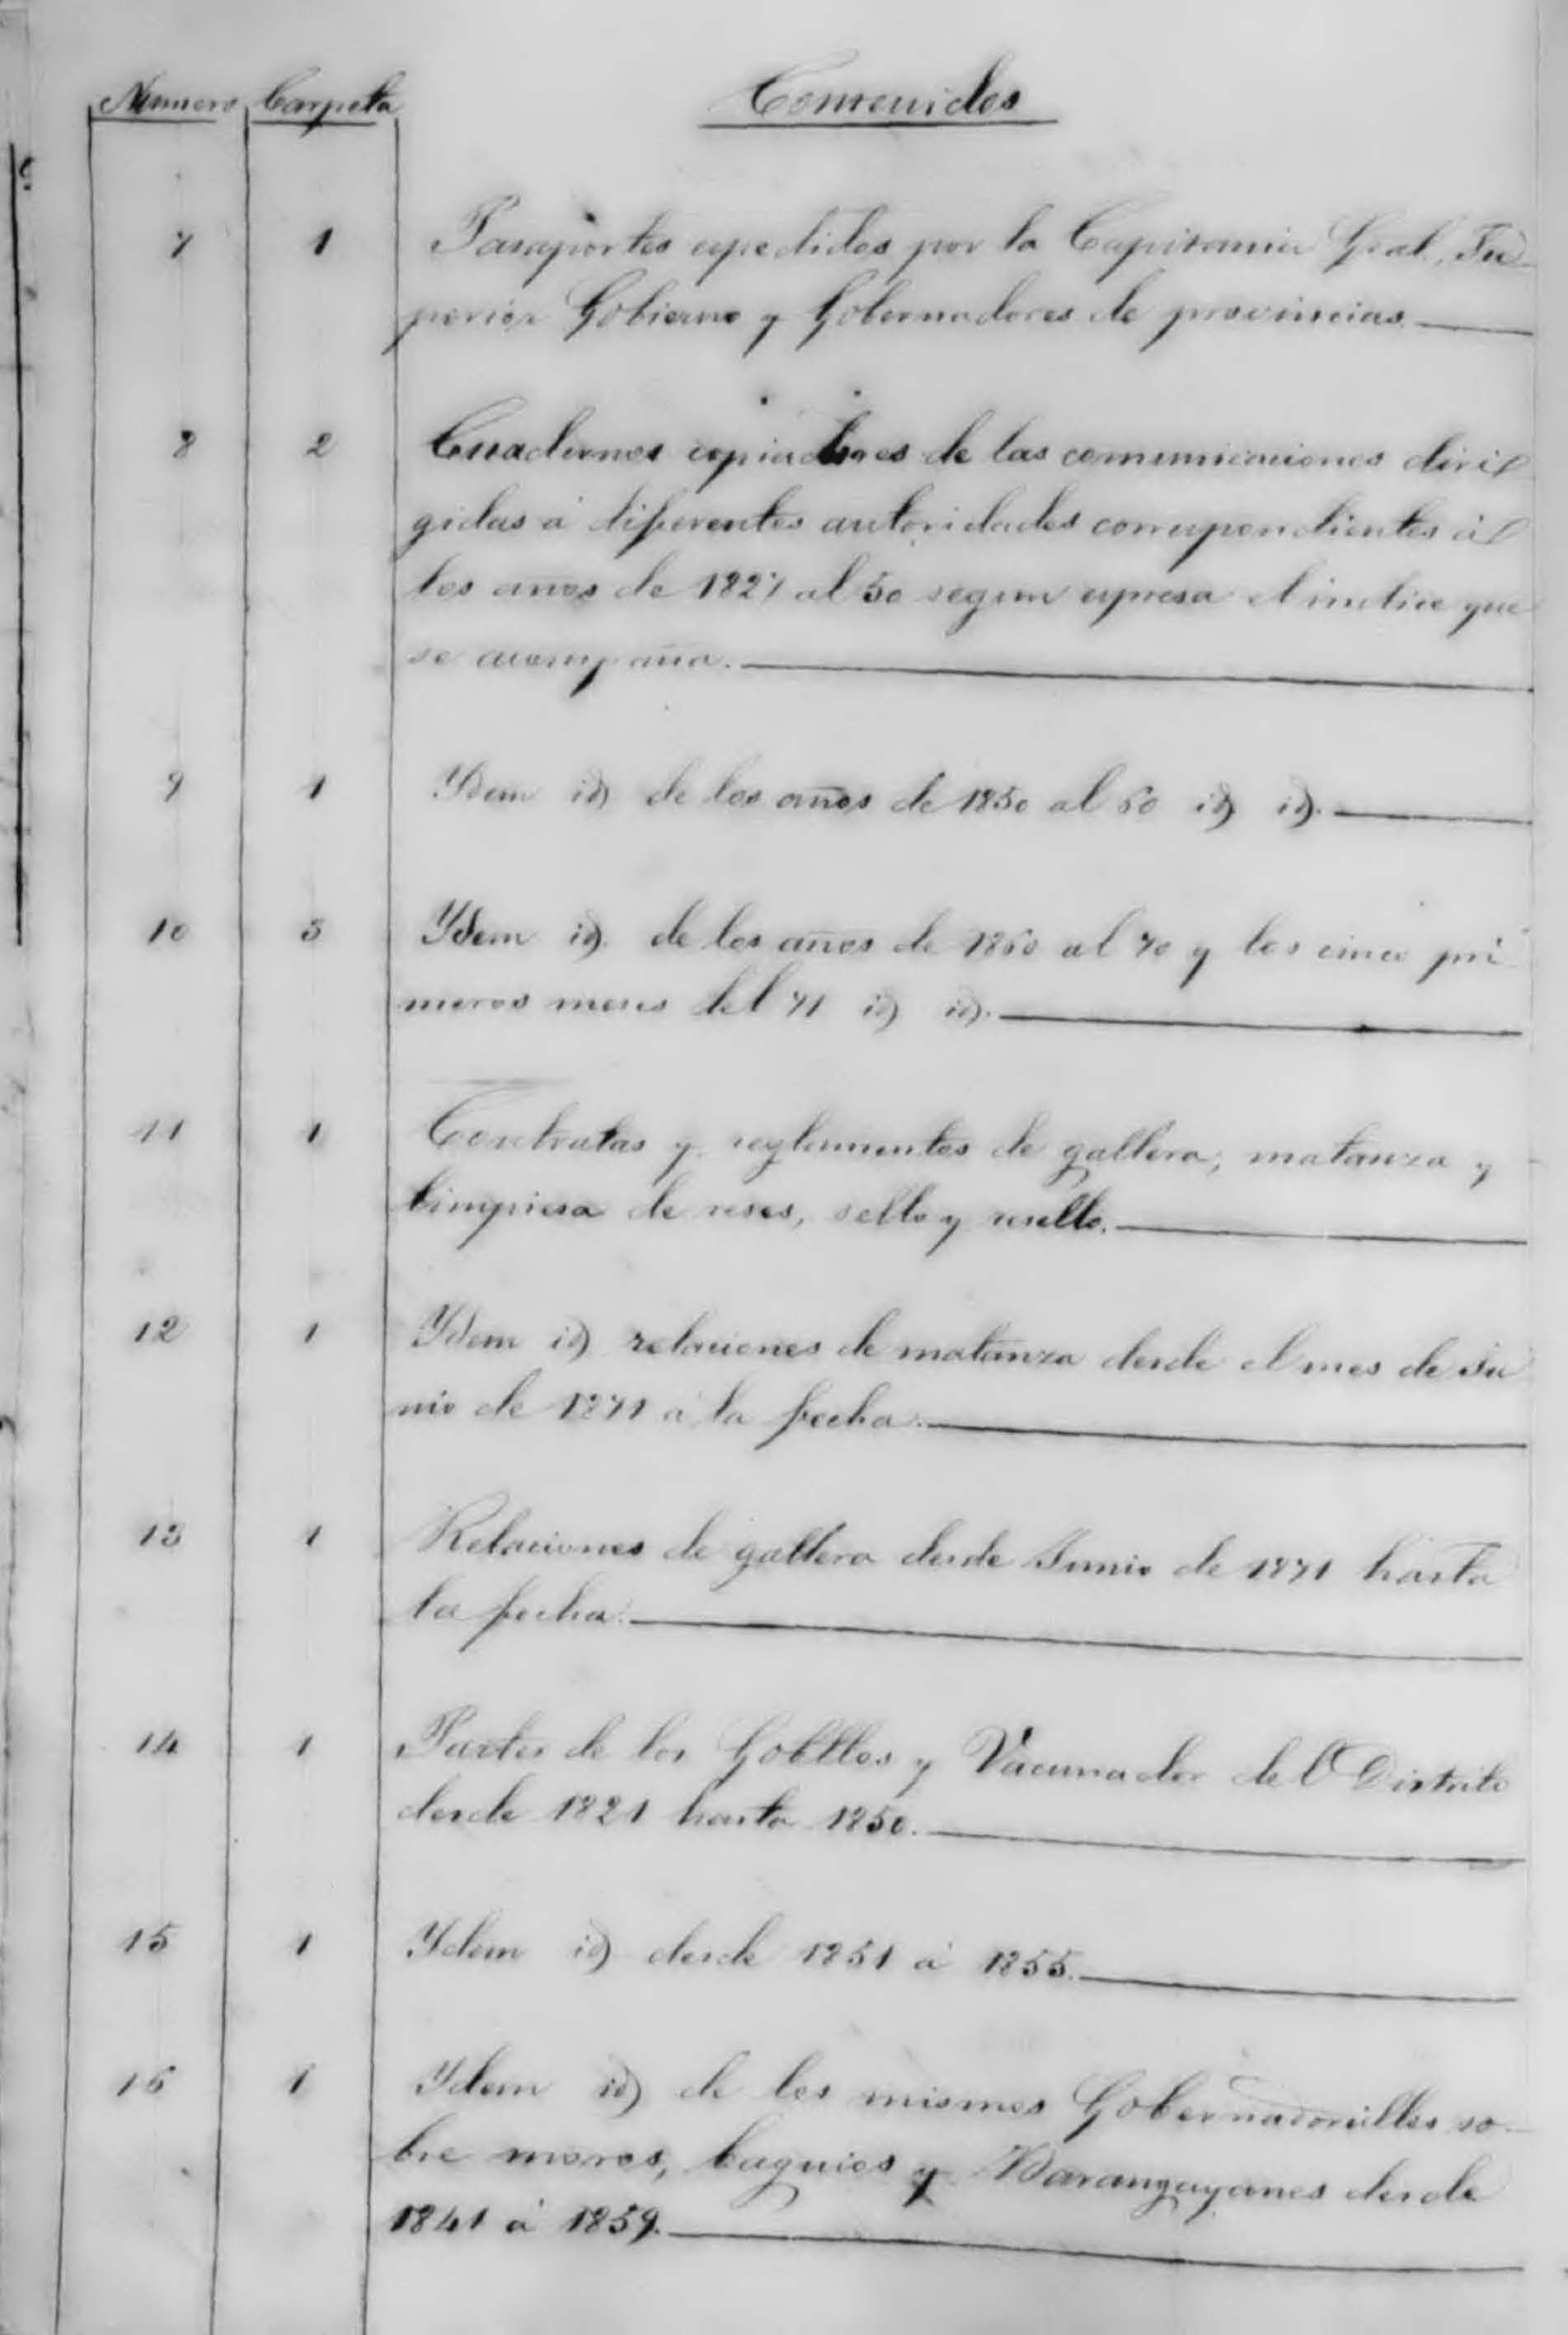 Numero Carpeta Contenidos
7 1 Pasaportes espedidos por la Capitania Gral, Su
perior Gobierno y Gobernadores de provincias.
8 2 Cuadernos copiadores de las comunicaciones diri
gidas á diferentes autoridades correspondientes á
los años de 1827 al 50 segun espresa el indice que
se acompaña.
9 1 Ydem id de los años de 1850 al 60 id id.
10 3 Ydem id. de los años de 1860 al 70 y los cinco pri
meros meses del 71 id id.
11 1 Contratas y reglamentos de gallera, matanza y
limpiesa de reses, sello y resello.
12 1 Ydem id relaciones de matanza desde el mes de Ju
nio de 1871 á la fecha.
13 1 Relaciones de gallera desde Junio de 1871 hasta
la fecha.
14 1 Partes de los Gobllos y Vacunador del Distrito
desde 1821 hasta 1850.
15 1 Ydem id desde 1851 á 1855.
16 1 Ydem id de los mismos Gobernadorcillos so
bre moros, baguios y Barangayanes desde
1841 á 1859.